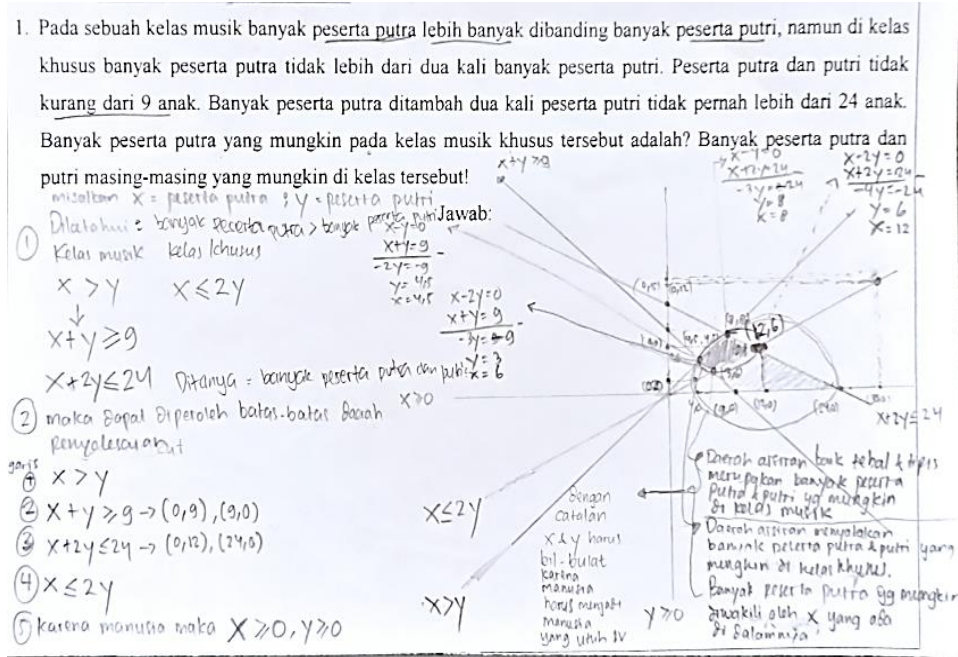 1. Pada sebuah kelas musik banyak peserta putra lebih banyak dibanding banyak peserta putri, namun di kelas
khusus banyak peserta putra tidak lebih dari dua kali banyak peserta putri. Peserta putra dan putri tidak
kurang dari 9 anak. Banyak peserta putra ditambah dua kali peserta putri tidak pernah lebih dari 24 anak.
Banyak peserta putra yang mungkin pada kelas musik khusus tersebut adalah? Banyak peserta putra dan
putri masing-masing yang mungkin di kelas tersebut!
misalkan x = peserta putra ; y = peserta putri
Jawab:
Diketahui : banyak peserta putra > banyak peserta putri
① Kelas musik kelas khusus
x > y x ≤ 2y
↓
x + y ≥ 9
x + 2y ≤ 24 Ditanya : banyak peserta putra dan putri
x-y=0
x+y=9
-2y=-9
y=4,5
x=4,5
x-2y=0
x+y=9
y=3
x=6
x+y≥9
x-y=0
x+2y=24
y=8
x=8
x-2y=0
x+2y=24
-4y=-24
y=6
x=12
② maka dapat diperoleh batas-batas daerah
penyelesaian
garis
① x > y
② x + y ≥ 9 → (0,9), (9,0)
③ x + 2y ≤ 24 → (0,12), (24,0)
④ x ≤ 2y
⑤ karena manusia maka x ≥ 0, y ≥ 0
x≥0
(0,12)
(12,6)
(9,0)
(24,0)
x+2y≤24
x≤2y
x>y
y≥0
Dengan
catatan
x & y harus
bil-bulat
karena
manusia
harus menjadi
manusia
yang utuh
Daerah arsiran baik tebal & tipis
merupakan banyak peserta
putra & putri yg mungkin
di kelas musik
Daerah arsiran menyatakan
banyak peserta putra & putri yang
mungkin di kelas khusus.
Banyak peserta putra yg mungkin
diwakili oleh x yang ada
di dalamnya